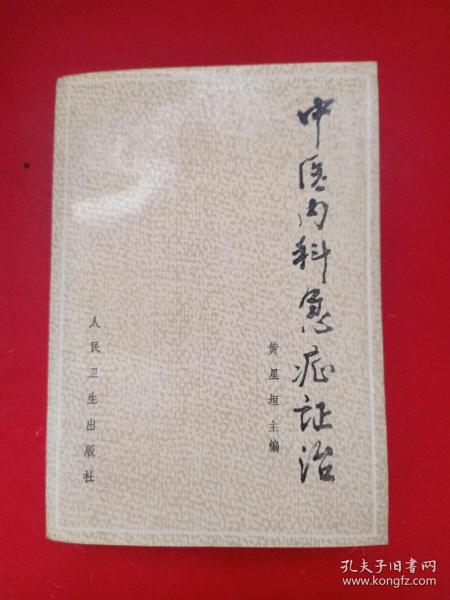 中医内科急症证治
黄星垣主编
人民卫生出版社
孔夫子旧书网
www.kongfz.com